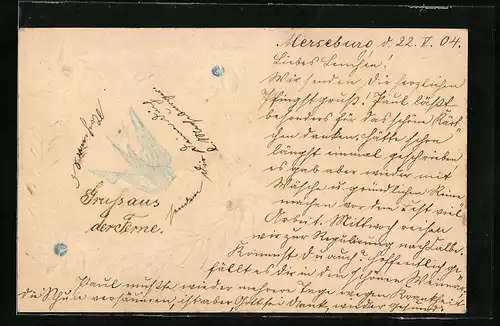 Merseburg, d. 22. V. 04.
Liebes Lenchen!
Wir senden Dir herzlichen
Pfingstgruß! Paul läßt
besonders für das schöne Kärt-
chen danken, hätte schon
längst einmal geschrieben
es gab aber wieder mit
Wäsche u. gründlichen Rein-
machen vor dem Fest viel
Arbeit. Mittwoch reisen
wir zur
Kommst Du auch? hoffentlich ge-
fällt es Dir in dem schönen Weimar
Paul mußte wieder mehrere Tage wegen Krankheit
die Schule versäumen, ist aber, Gott sei Dank, wieder gesund.
Gruss aus
der Ferne.
senden Dir